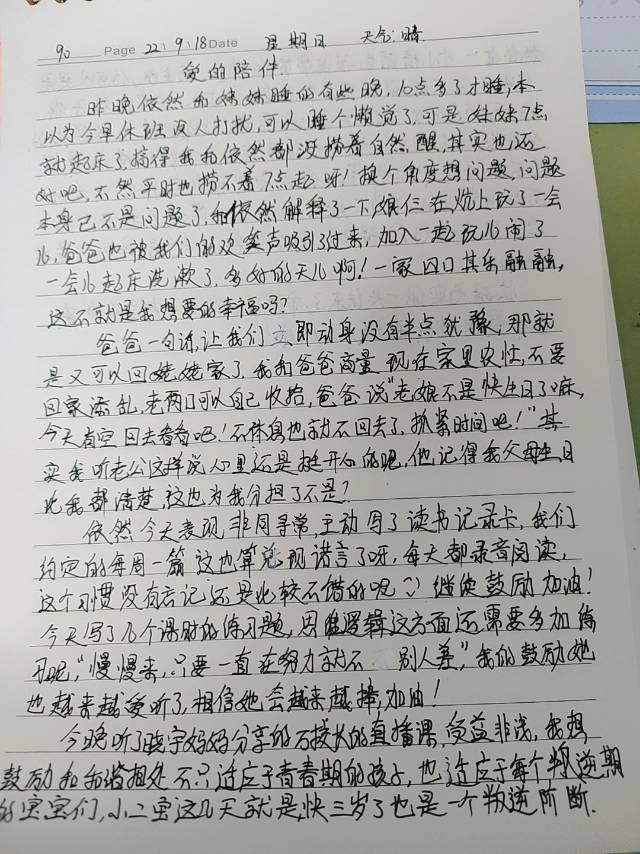 90 Page 22\9\18 Date 星期日 天气:晴.
爱的陪伴
昨晚依然和妹妹睡的有些晚,10点多了才睡,本
以为今早休班没人打扰,可以睡个懒觉了,可是妹妹7点
就起床了,搞得我和依然都没捞着自然醒,其实也还
好吧,不然平时也捞不着7点起呀!换个角度想问题,问题
本身已不是问题了,和依然解释了一下,娘仨在炕上玩了一会
儿,爸爸也被我们的欢笑声吸引了过来,加入一起玩儿闹了
一会儿起床洗漱了,多好的天儿啊!一家四口其乐融融,
这不就是我想要的幸福吗?
爸爸一句话,让我们立即动身没有半点犹豫,那就
是又可以回姥姥家了,我和爸爸商量现在家里农忙,不要
回家添乱,老两口可以自己收拾,爸爸说"老娘不是快生日了嘛,
今天有空回去看看吧!不休息也就不回去了,抓紧时间吧!"其
实我听老公这样说心里还是挺开心的呢,他记得我父母生日
比我都清楚,这也为我分担了不是?
依然今天表现非同寻常,主动写了读书记录卡,我们
约定的每周一篇这也算兑现诺言了呀,每天都录音阅读,
这个习惯没有忘记还是比较不错的呢 继续鼓励加油!
今天写了几个课时的练习题,思维逻辑这方面还需要多加练
习呢,"慢慢来,只要一直在努力就不 别人差",我的鼓励她
也越来越爱听了,相信她会越来越棒,加油!
今晚听了晓宇妈妈分享的万校长的直播课,受益非浅,我想
鼓励和和谐相处不只适应于青春期的孩子,也适应于每个叛逆期
的宝宝们,小二宝这几天就是,快三岁了也是一个叛逆阶断.